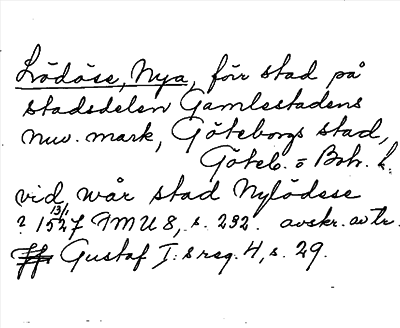 Lödöse, Nya, förr stad på
stadsdelen Gamlestadens
nuv. mark, Göteborgs stad,
Göteb. = Boh. l.
vid wår stad Nylödese
? 13/1 1527 GMU 8, s. 292. avskr. av tr.
Gustaf I:s reg. 4, s. 29.